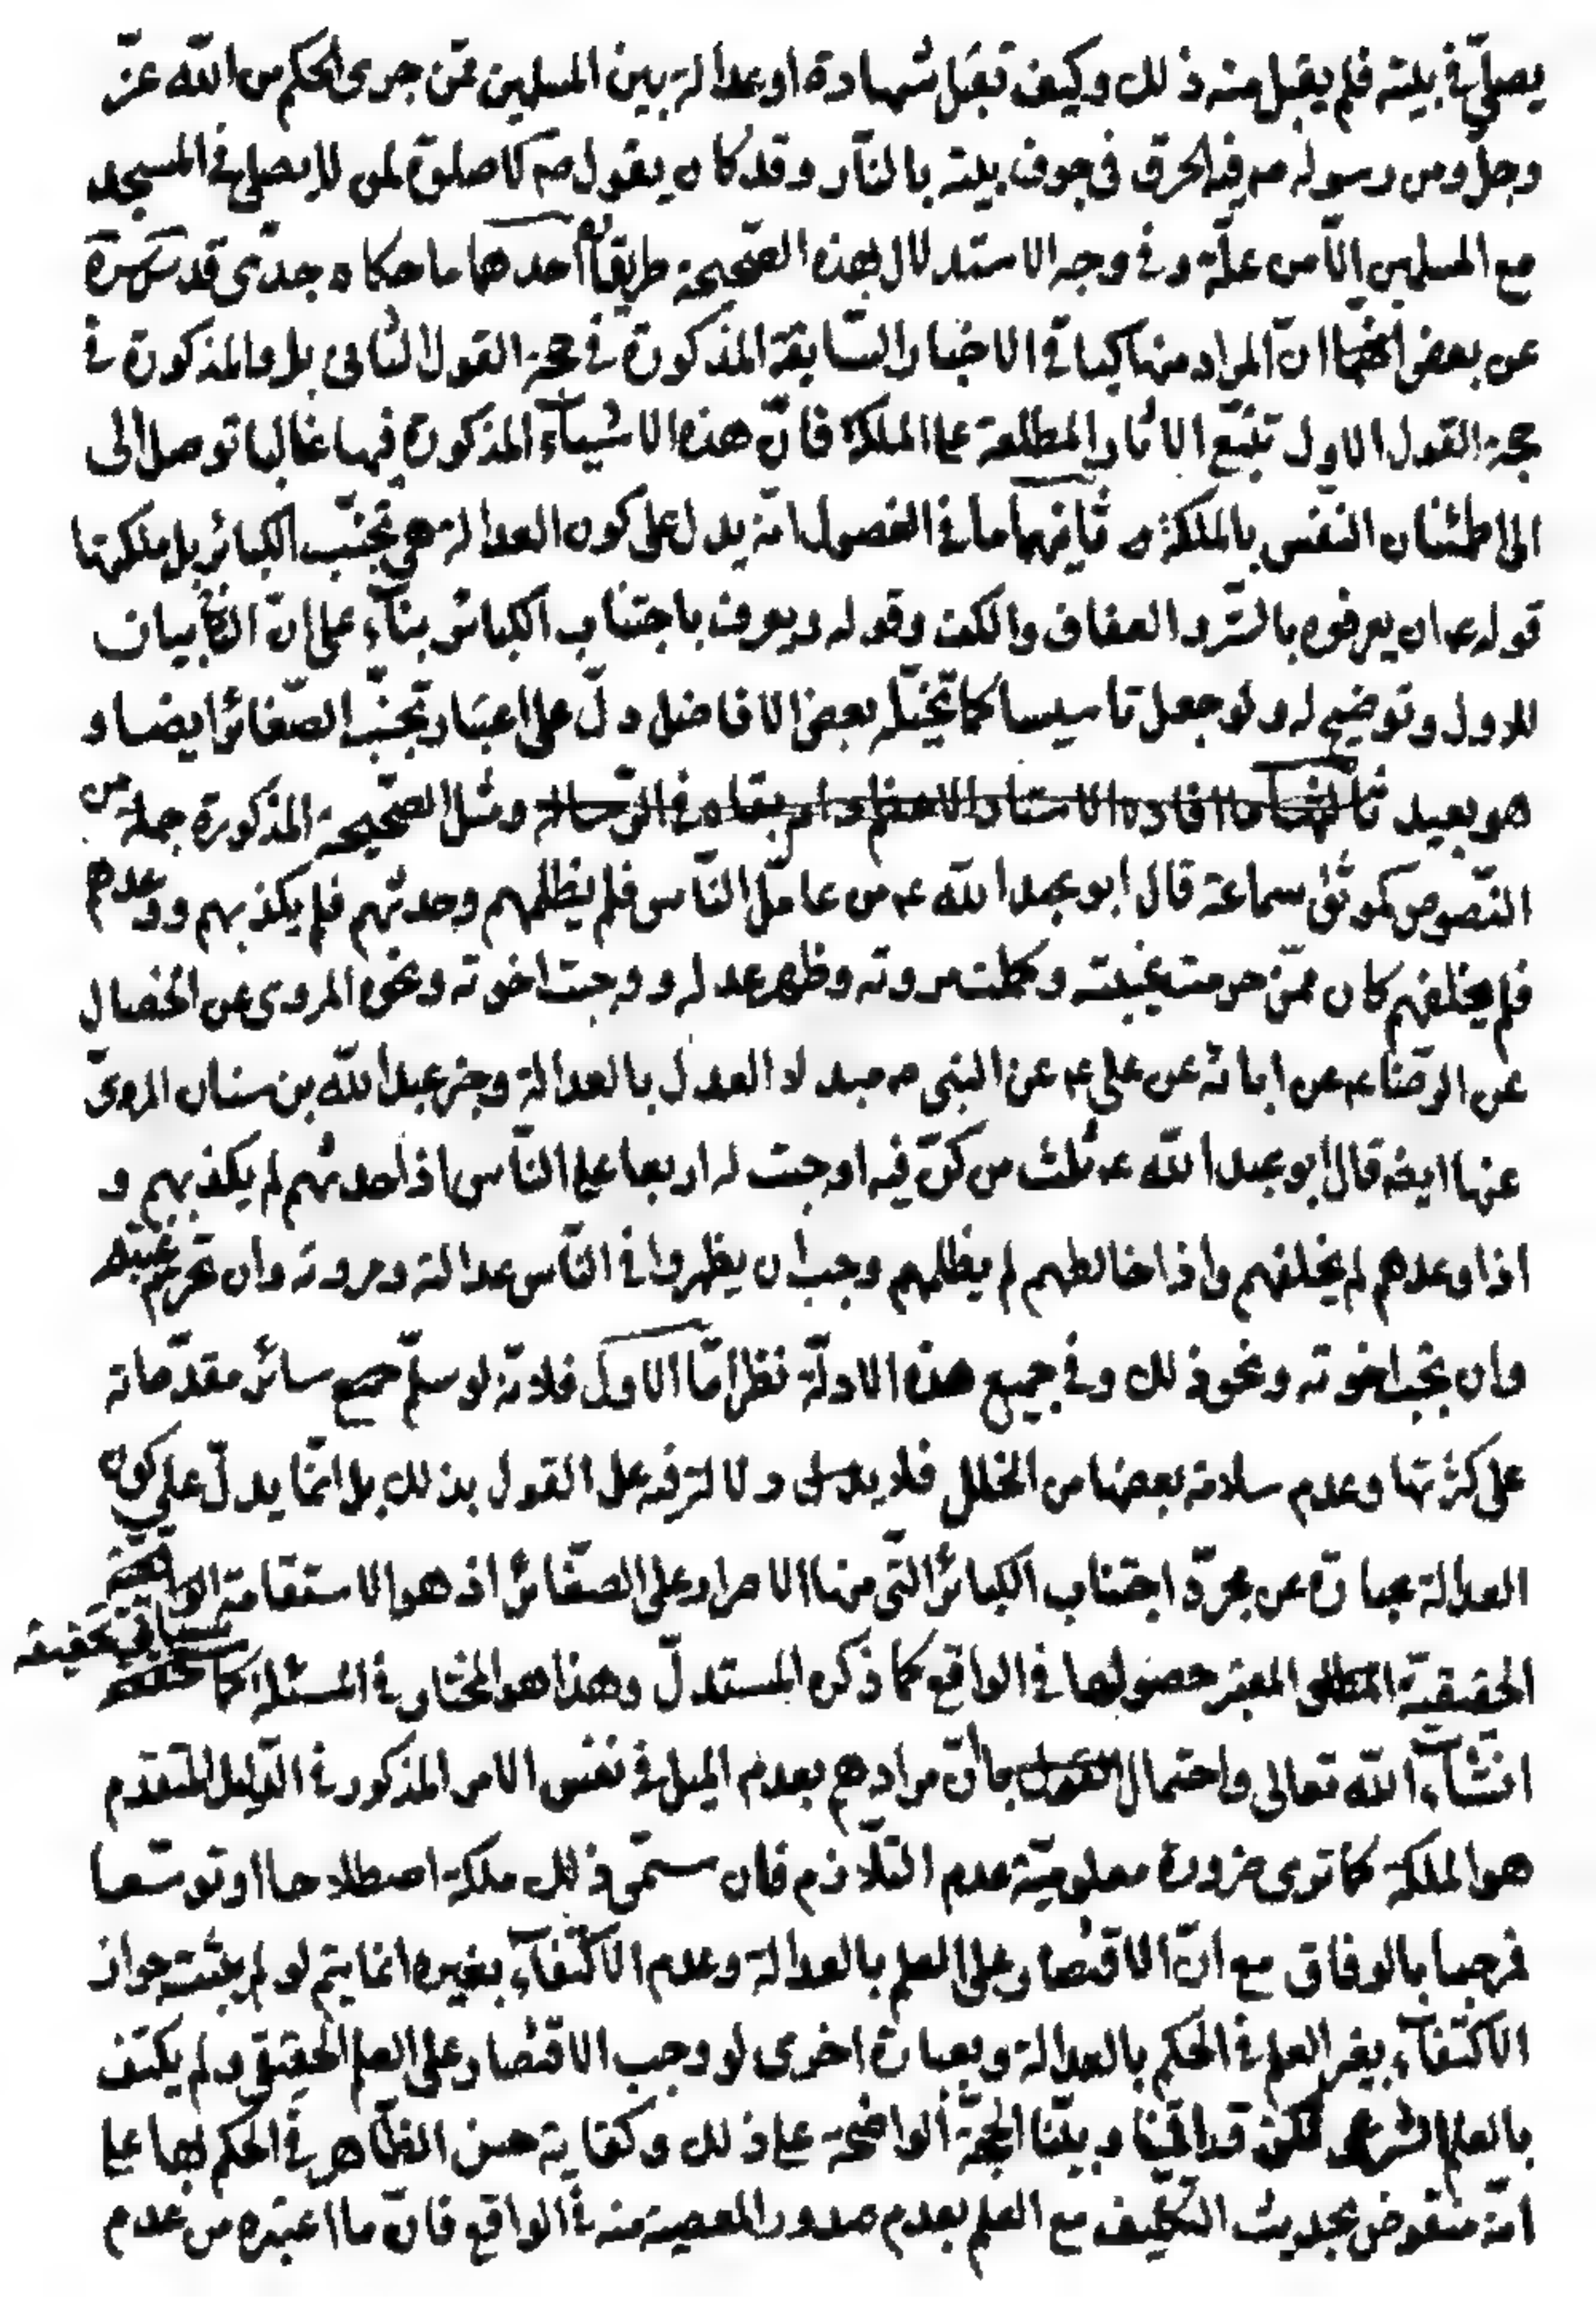 يصلّي في بيته فلم يقبل منه ذلك وكيف تقبل شهادة او عدالة بين المسلمين ممّن جرى الحكم من الله عزّ
وجلّ ومن رسوله ص فيه الحرق في جوف بيته بالنّار وقد كان يقول ص لا صلوة لمن لا يصلي في المسجد
مع المسلمين الّا من علّة وفي وجه الاستدلال بهذه الصّحيحة طريقان احدهما ما حكاه جدّي قد سرّه
عن بعض انّ المراد منها كباقي الاخبار السّابقة المذكورة في حجة القول الثّاني بل والمذكورة في
حجة القول الاول تتبّع الاثار المطلعة على الملكة فانّ هذه الاشياء المذكورة فيها غالبا توصل الى
الى اطمئنان النّفس بالملكة و ثانيهما ما في الفصول انّه يدل على كون العدالة هي تجنّب الكبائر بل ملكتها
قوله ع ان يعرفوه بالسّتر والعفاف والكف وقوله ويعرف باجتناب الكبائر بناء على انّ الثّاني بيان
للاول وتوضيح له ولو جعل تاسيسا كما تخيّله بعض الافاضل دلّ على اعتبار تجنّب الصّغائر ايضا و
هو بعيد ثالثها ما افاده الاستاد الاعظم دام بقاه في الرّسالة ومثل الصّحيحة المذكورة جملة من
النّصوص كموثّق سماعة قال ابو عبد الله ع من عامل النّاس فلم يظلمهم وحدثهم فلم يكذبهم ووعدهم
فلم يخلفهم كان ممّن حرمت غيبته وكملت مروته وظهر عدله ووجبت اخوته ونحوه المروي عن الخصال
عن الرّضا ع عن ابائه عن علي ع عن النبي ص مبدلا العدل بالعدالة وخبر عبد الله بن سنان المرويّ
عنها ايضا قال ابو عبد الله ع ثلث من كنّ فيه اوجبت له اربعا على النّاس اذا حدثهم لم يكذبهم و
اذا وعدهم لم يخلفهم واذا خالطهم لم يظلمهم وجب ان يظهروا في النّاس عدالته ومروته وان تحرم غيبته
وان تجب اخوته ونحو ذلك وفي جميع هذه الادلّة نظر امّا الاول فلانّه لو سلّم جميع سائر مقدّماته
على كثرتها وعدم سلامة بعضها من الخلل فلا يدل ولا لترفه على القول بذلك بل انّما يدلّ على كون
العدالة عبارة عن مجرّد اجتناب الكبائر الّتي منها الاصرار على الصّغائر اذ هو الاستقامة الواقعيّة
الحقيقيّة المعتبر حصولها في الواقع كما ذكره المستدلّ وهذا هو المختار في المسئلة كما سياتي تحقيقه
انشاء الله تعالى واحتمال بانّ مرادهم بعدم الميل في نفس الامر المذكور في الدّليل المتقدم
هو الملكة كما ترى ضرورة معلوميّة عدم التّلازم فان سمّى ذلك ملكة اصطلاحا او توسّعا
فمرحبا بالوفاق مع انّ الاقتصار على العلم بالعدالة وعدم الاكتفاء بغيره انما يتم لو لم يثبت جواز
الاكتفاء بغير العلم في الحكم بالعدالة وبعبارة اخرى لو وجب الاقتصار على العلم الحقيقي ولم يكتف
بالعلم الشرعي لكن قد اقمنا وبيّنا الحجّة الواضحة على ذلك وكفاية حسن الظّاهر في الحكم بها على
انّه منقوض بحديث التّكليف مع العلم بعدم صدور المعصية منه في الواقع فانّ ما اعتبره من عدم